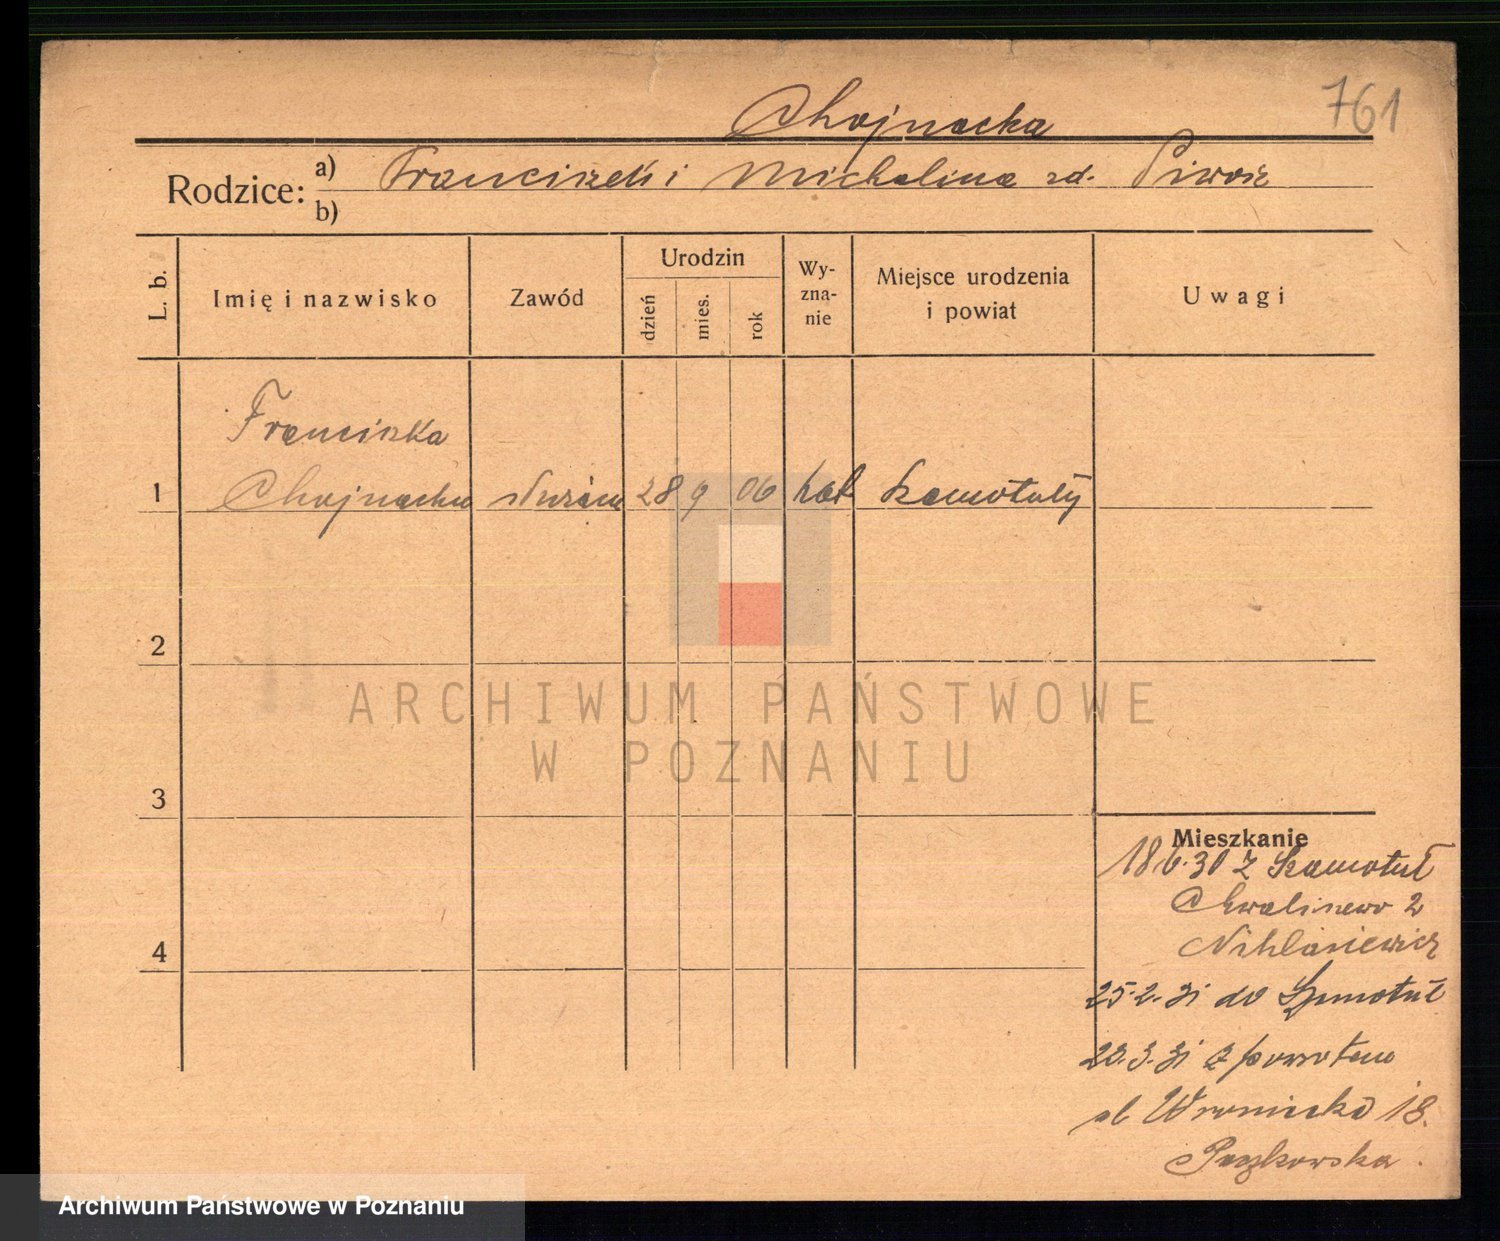 761
Chojnacka
Rodzice: a) Franciszek i Michalina zd. Piwosz
b)
L. b. Imię i nazwisko Zawód Urodzin dzień mies. rok Wy-zna-nie Miejsce urodzenia i powiat Uwagi
Franciszka
1 Chojnacka służąca 28 9 06 kat Szamotuły
2
ARCHIWUM PAŃSTWOWE
W POZNANIU
3
Mieszkanie
4
18.6.30 z Szamotuł
Chwaliszewo 2
25.2.31 do Szamotuł
.3.31 z powrotem
ul Wroniecka 18.
Archiwum Państwowe w Poznaniu